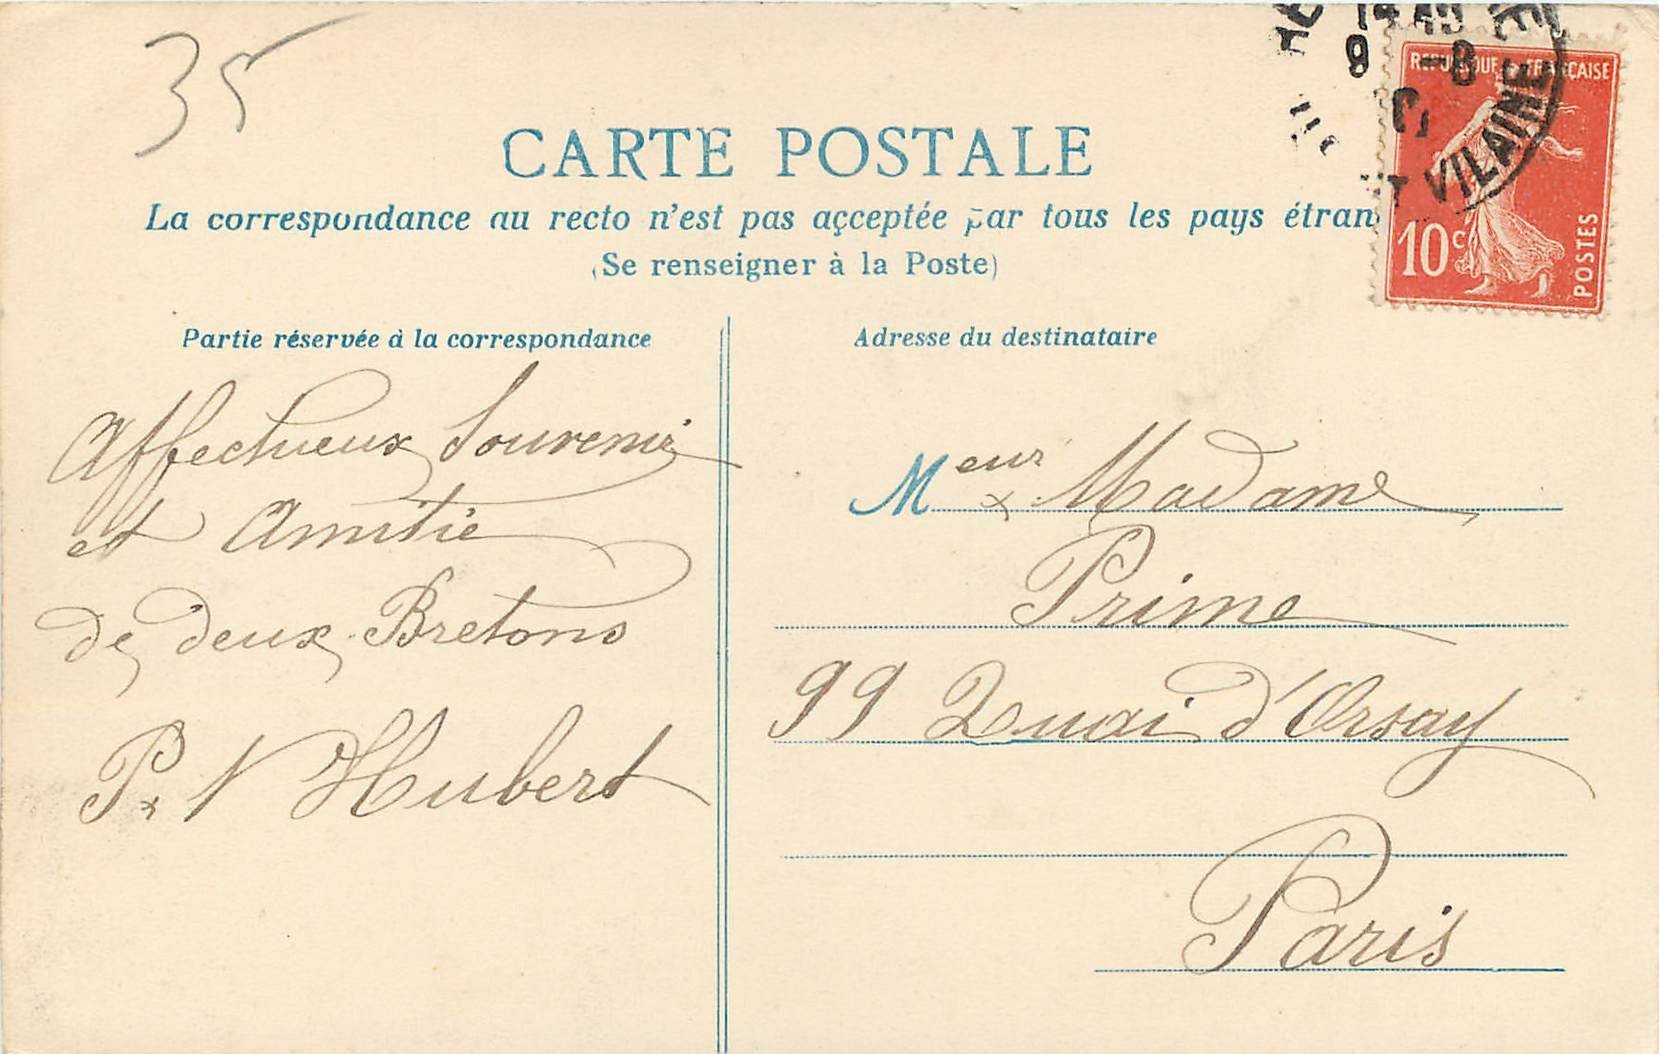 35
CARTE POSTALE
La correspondance au recto n'est pas açceptée par tous les pays étran
(Se renseigner à la Poste)
Partie réservée à la correspondance
Affectueux Souvenir
et Amitié
de deux Bretons
P. Hubert
Adresse du destinataire
Meur & Madame
Prime
99 Quai d'Orsay
Paris
14 40
9 -8
VILAINE
REPUBLIQUE FRANÇAISE
10c
POSTES